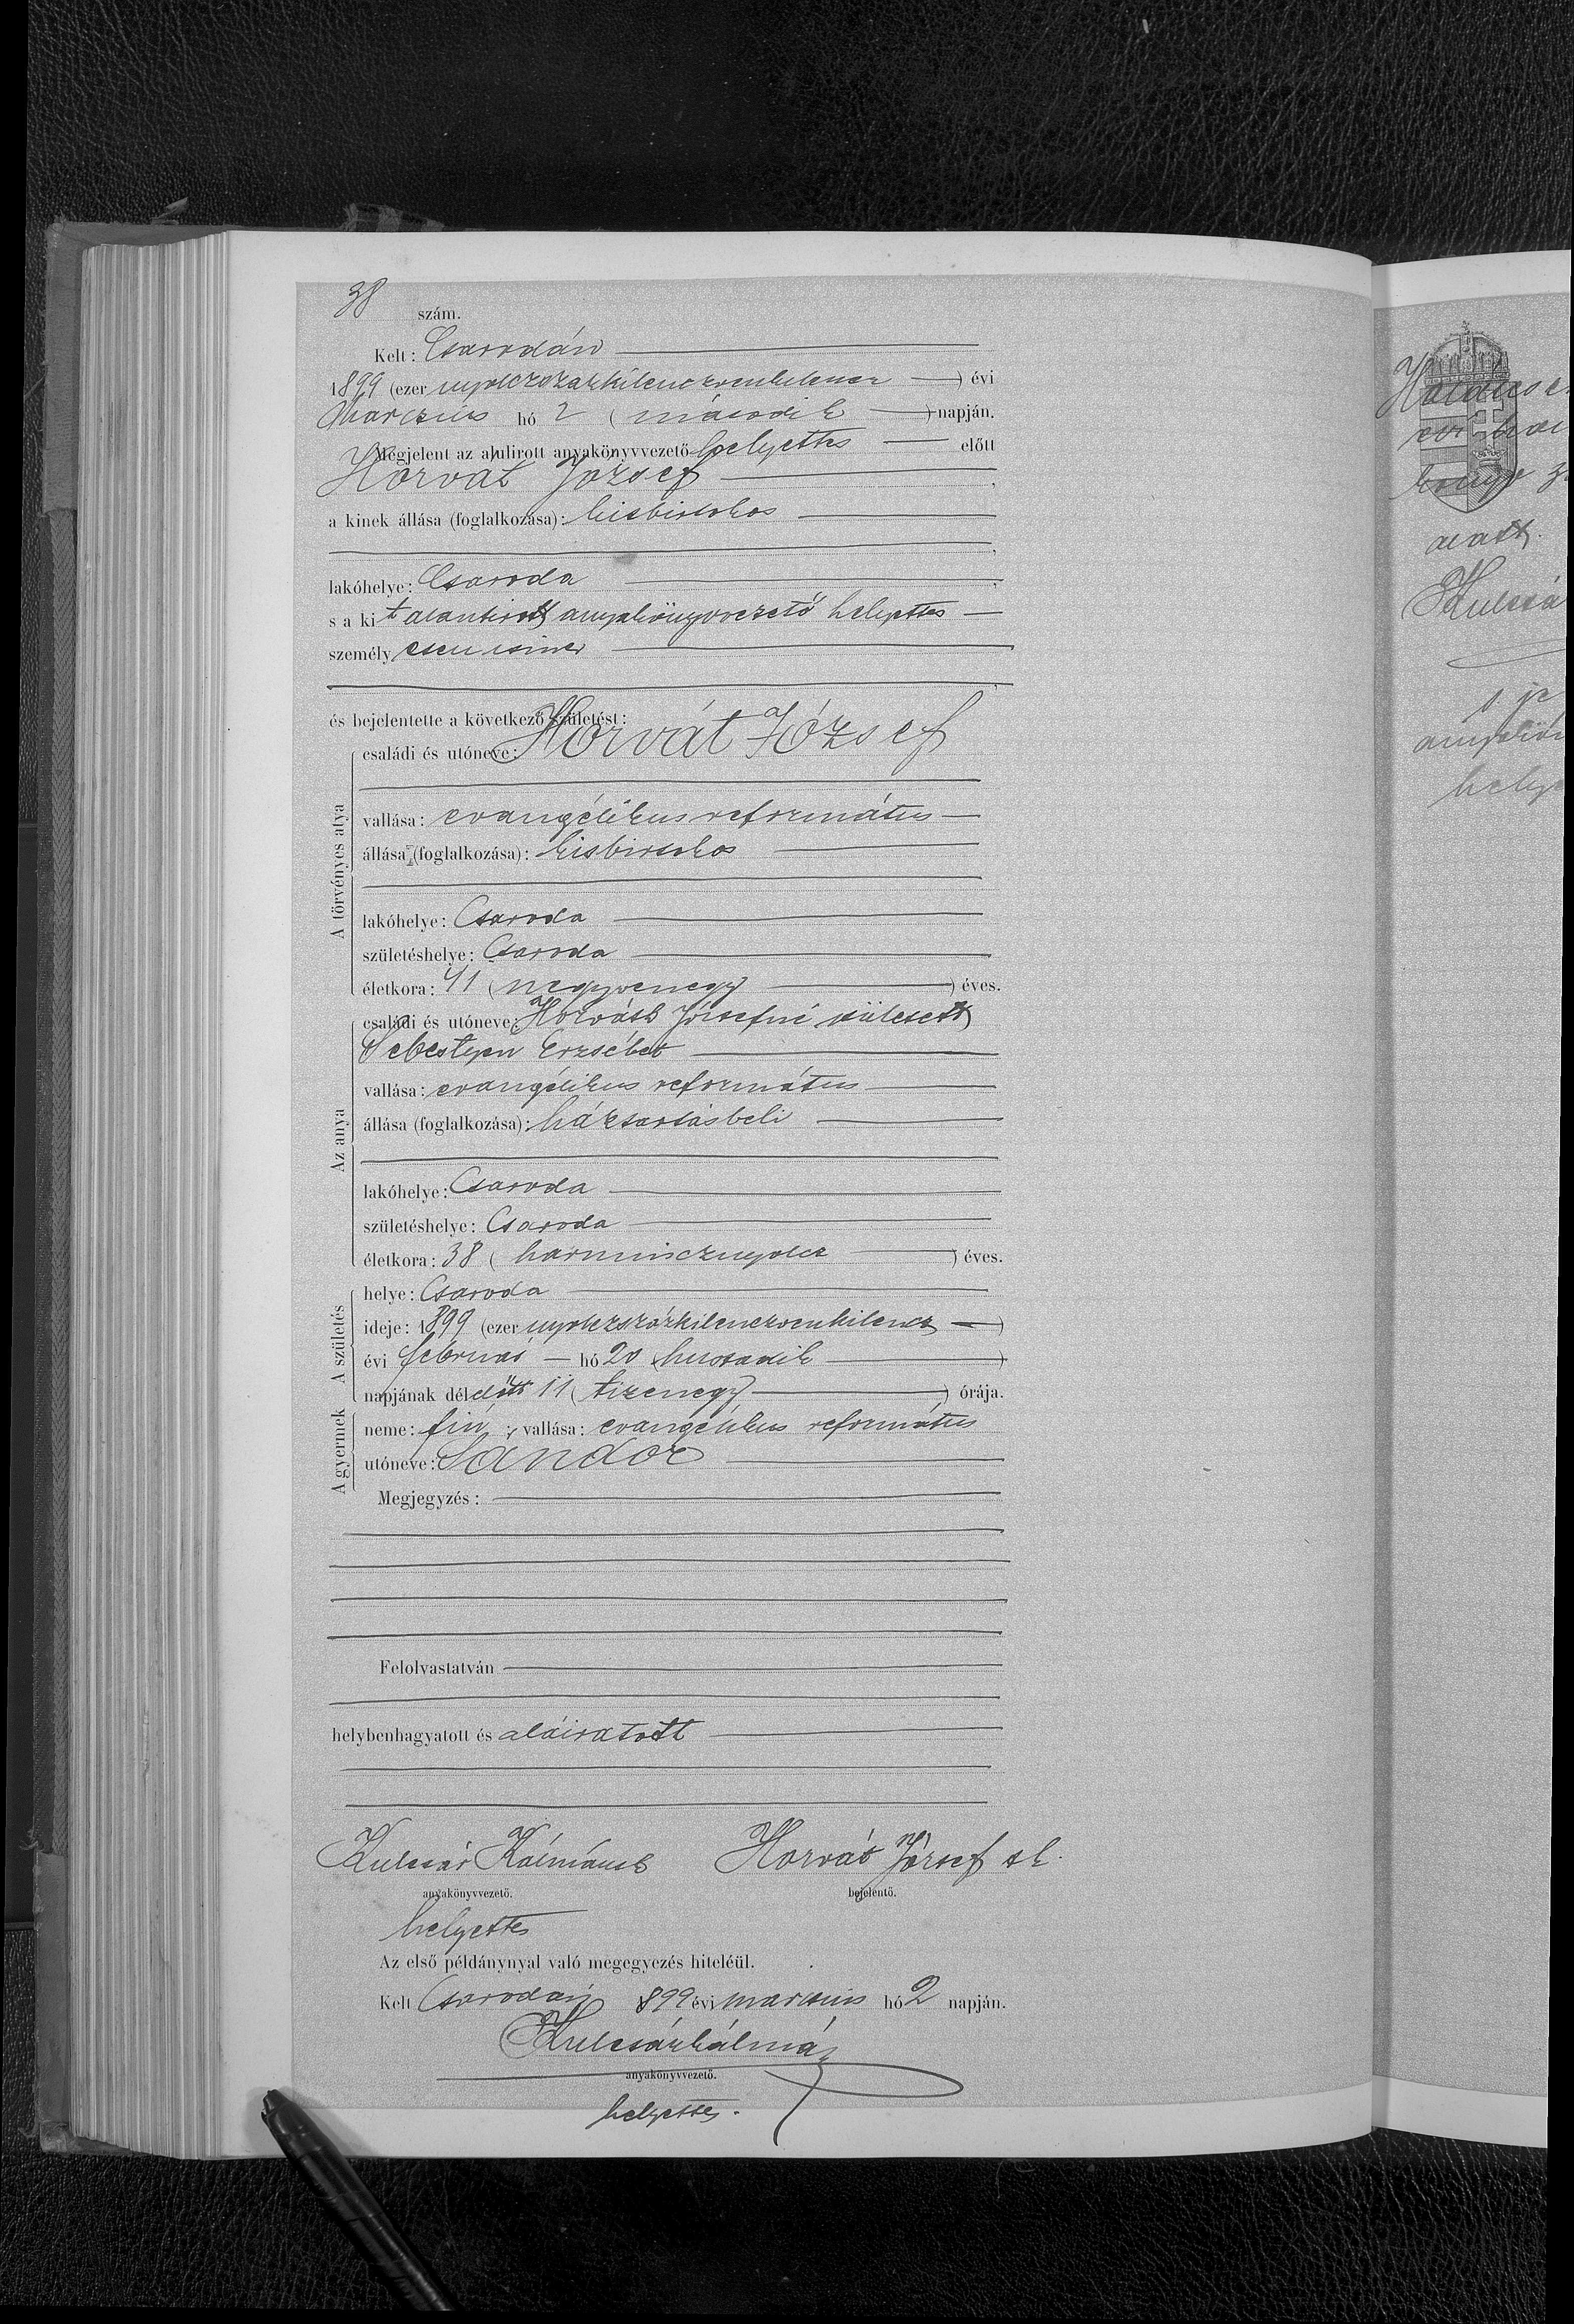 38 szám.
Kelt: Csarodán
1899 (ezer nyolczszázkilenczvenkilencz ) évi
Marczius hó 2 (második ) napján.
Megjelent az alulirott anyakönyvvezető helyettes előtt
Horvát József ,
a kinek állása (foglalkozása): kisbirtokos
lakóhelye: Csaroda ,
s a kit alantirott anyakönyvvezető helyettes
személyesen ismer
és bejelentette a következő születést:
A törvényes atya
családi és utóneve: Horvát József
vallása: evangélikus református
állása (foglalkozása): kisbirtokos
lakóhelye: Csaroda
születéshelye: Csaroda
életkora: 41 (negyvenegy ) éves.
Az anya
családi és utóneve: Horváth Józsefné született
Sebestyén Erzsébet
vallása: evangélikus református
állása (foglalkozása): háztartásbeli
lakóhelye: Csaroda
születéshelye: Csaroda
életkora: 38 (harmincznyolcz ) éves.
A születés
helye: Csaroda
ideje: 1899 (ezer nyolczszázkilenczvenkilencz )
évi február hó 20 (huszadik )
napjának délelőtt 11 (tizenegy ) órája.
A gyermek
neme: fiú ; vallása: evangélikus református
utóneve: Sándor
Megjegyzés:
Felolvastatván
helybenhagyatott és aláiratott
Kulcsár Kálmán sk Horvát József sk.
anyakönyvvezető. bejelentő.
helyettes
Az első példánynyal való megegyezés hiteléül.
Kelt Csarodán 1899 évi marczius hó 2 napján.
Kulcsár Kálmán
anyakönyvvezető.
helyettes.
alatt.
Kulcsá